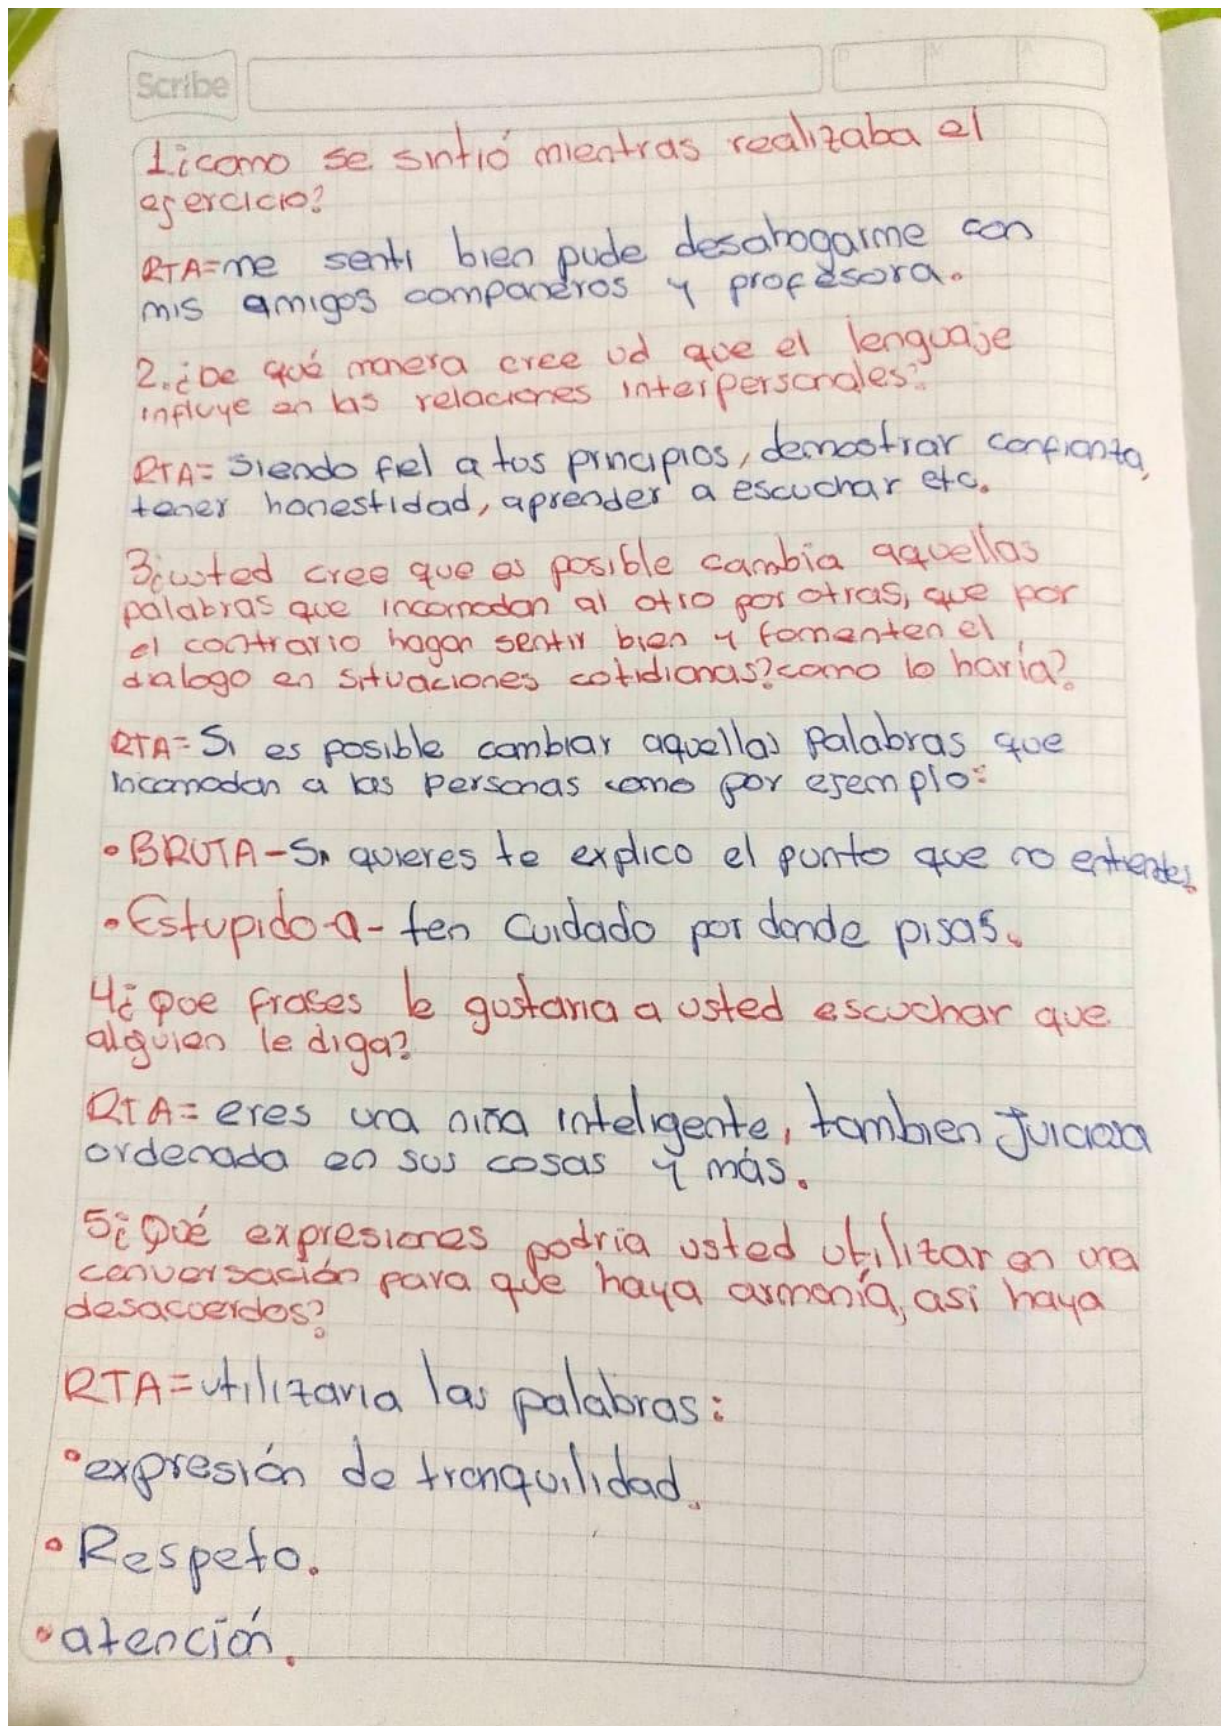 Scribe
1.¿como se sintió mientras realizaba el
ejercicio?
RTA=me senti bien pude desahogarme con
mis amigos compañeros y profesora.
2.¿De qué manera cree ud que el lenguaje
influye en las relaciones interpersonales?
RTA= Siendo fiel a tus principios, demostrar confianza,
tener honestidad, aprender a escuchar etc.
3¿usted cree que es posible cambia aquellas
palabras que incomodan al otro por otras, que por
el contrario hagan sentir bien y fomenten el
dialogo en situaciones cotidianas? como lo haría?
RTA= Si es posible cambiar aquellas palabras que
incomodan a las personas como por ejemplo:
• BRUTA-Si quieres te explico el punto que no entiendes.
• Estupido-a- ten cuidado por donde pisas.
4¿Que frases le gustaria a usted escuchar que
alguien le diga?
RTA= eres una niña inteligente, tambien Juiciosa
ordenada en sus cosas y más.
5¿Qué expresiones podria usted utilizar en una
conversación para que haya armonía, asi haya
desacuerdos?
RTA=utilizaria las palabras:
• expresión de tranquilidad.
• Respeto.
• atención.